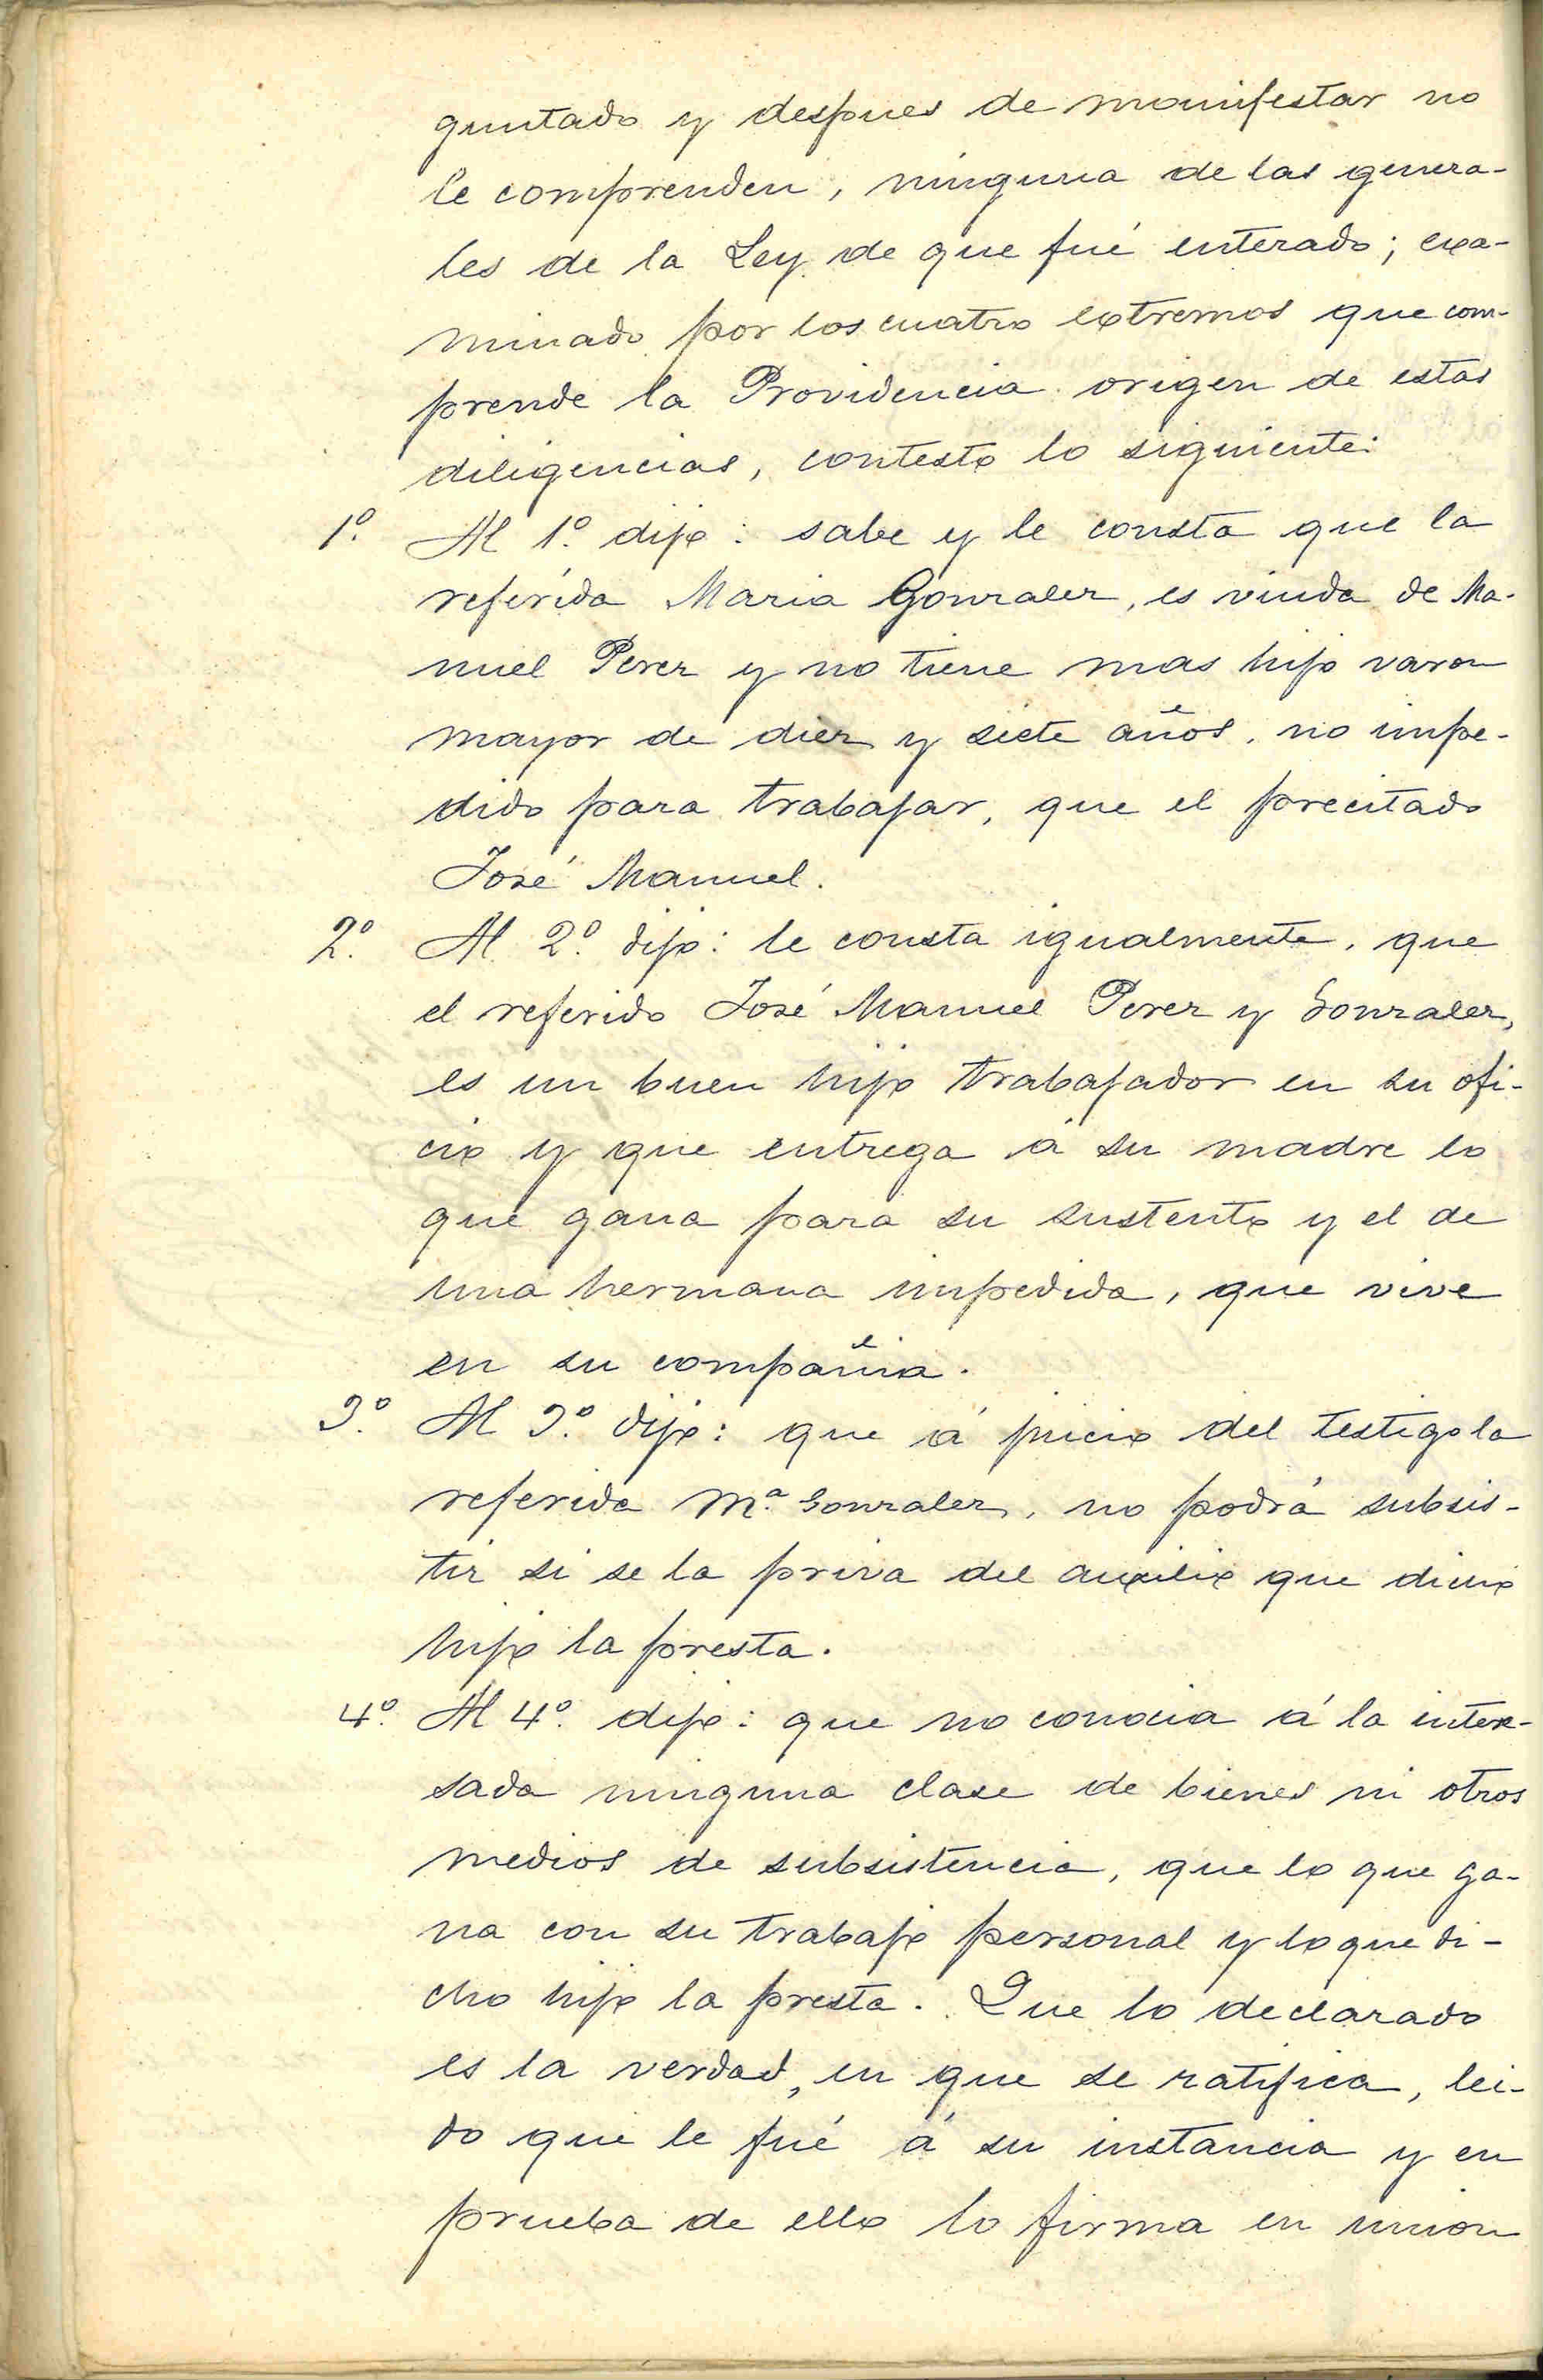 guntado y despues de manifestar no
le comprenden, ninguna de las genera-
les de la Ley de que fué enterado; exa-
minado por los cuatro extremos que com-
prende la Providencia origen de estas
diligencias, contesto lo siguiente:
1º. Al 1º. dijo: sabe y le consta que la
referida Maria Gonzalez, es viuda de Ma-
nuel Perez y no tiene mas hijo varon
mayor de diez y siete años, no impe-
dido para trabajar, que el precitado
José Manuel.
2º. Al 2º. dijo: le consta igualmente, que
el referido José Manuel Perez y Gonzalez,
es un buen hijo trabajador en su ofi-
cio y que entrega á su madre lo
que gana para su sustento y el de
una hermana impedida, que vive
en su compañia.
3º. Al 3º. dijo: que á juicio del testigo la
referida Mª. Gonzalez, no podrá subsis-
tir si se la priva del auxilio que dicho
hijo la presta.
4º. Al 4º. dijo: que no conocia á la intere-
sada ninguna clase de bienes ni otros
medios de subsistencia, que lo que ga-
na con su trabajo personal y lo que di-
cho hijo la presta. Que lo declarado
es la verdad, en que se ratifica, lei-
do que le fué á su instancia y en
prueba de ello lo firma en union